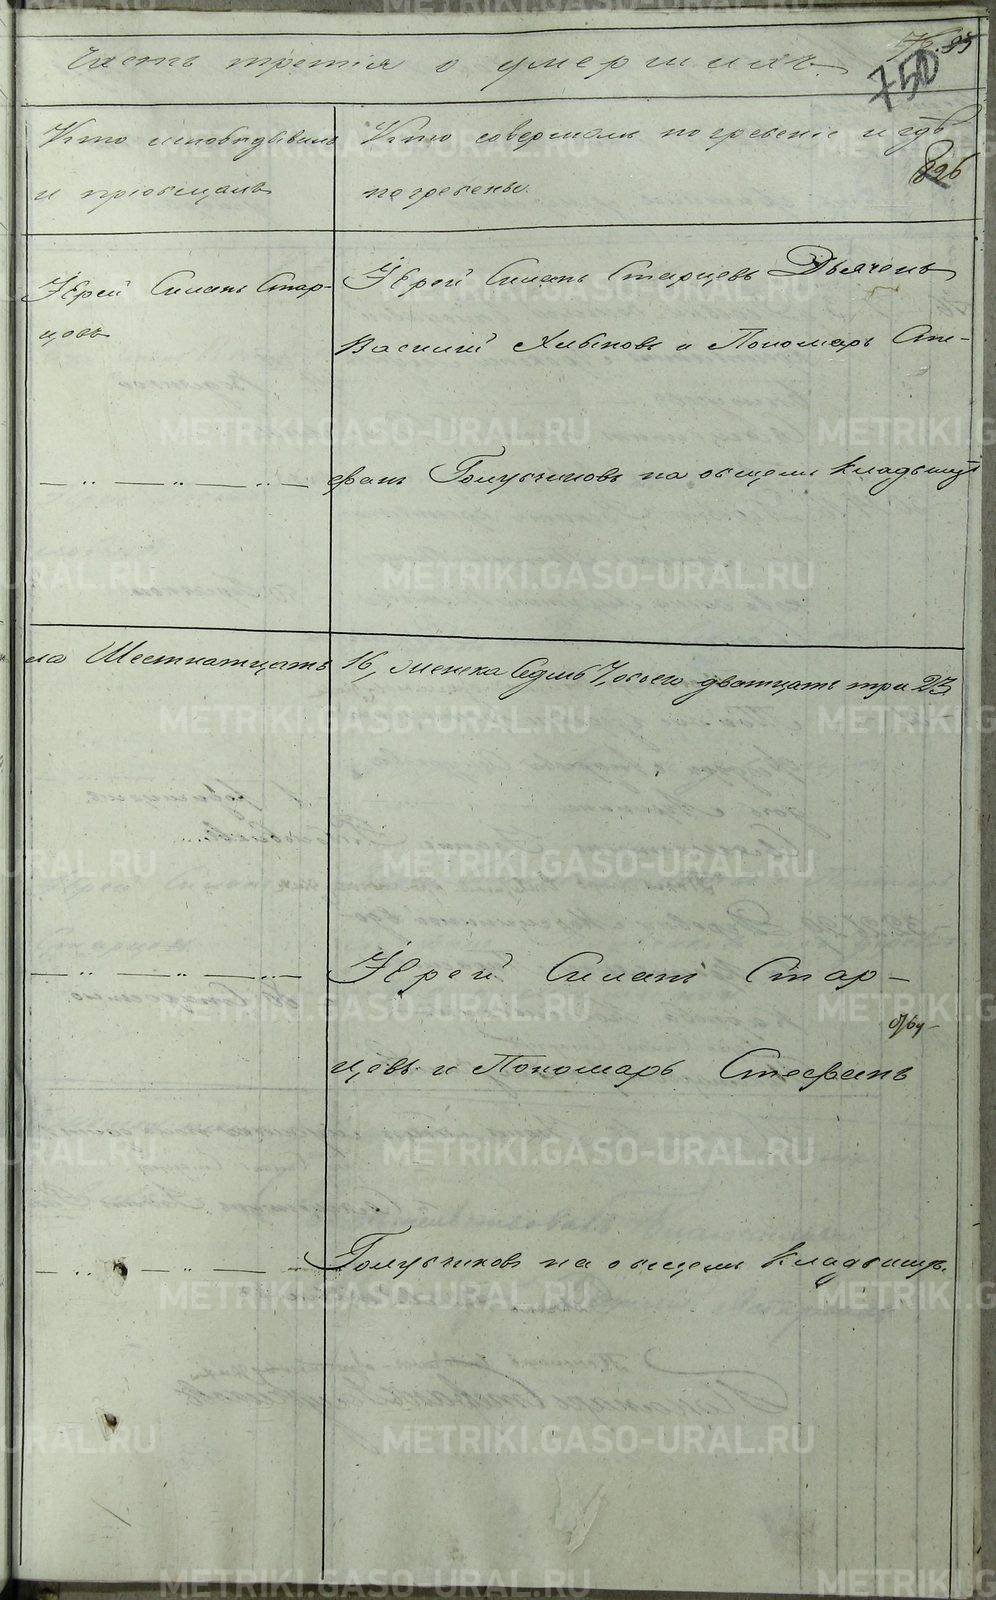 Часть третія о умершихъ.
750
826
Кто исповѣдывалъ
и пріобщалъ
Кто совершалъ погребеніе и гдѣ
погребены.
Іерей Симеонъ Стар-
цовъ
Іерей Симеонъ Старцевъ Дьячекъ
Василій Хлыновъ и Пономарь Сте-
фанъ Голубчиковъ на общемъ кладбищѣ
ла Шестнатцать 16, женска Седмь 7, обоего дватцать три 23
Іерей Симеонъ Стар-
цевъ и Пономарь Стефанъ
Голубчиковъ на общемъ кладбищѣ.
METRIKI.GASO-URAL.RU